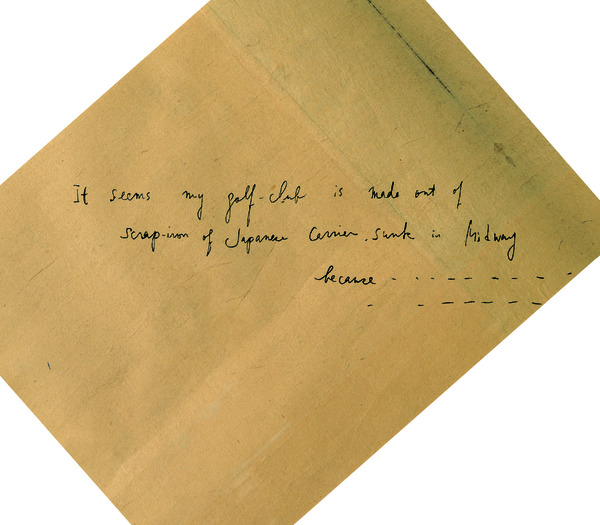 It seems my golf-club is made out of
scrap-iron of Japanese Carrier. sunk in Midway
because - - - - - - - - -
- - - - - -